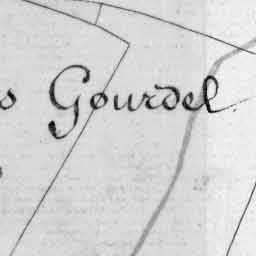 s Gourdel